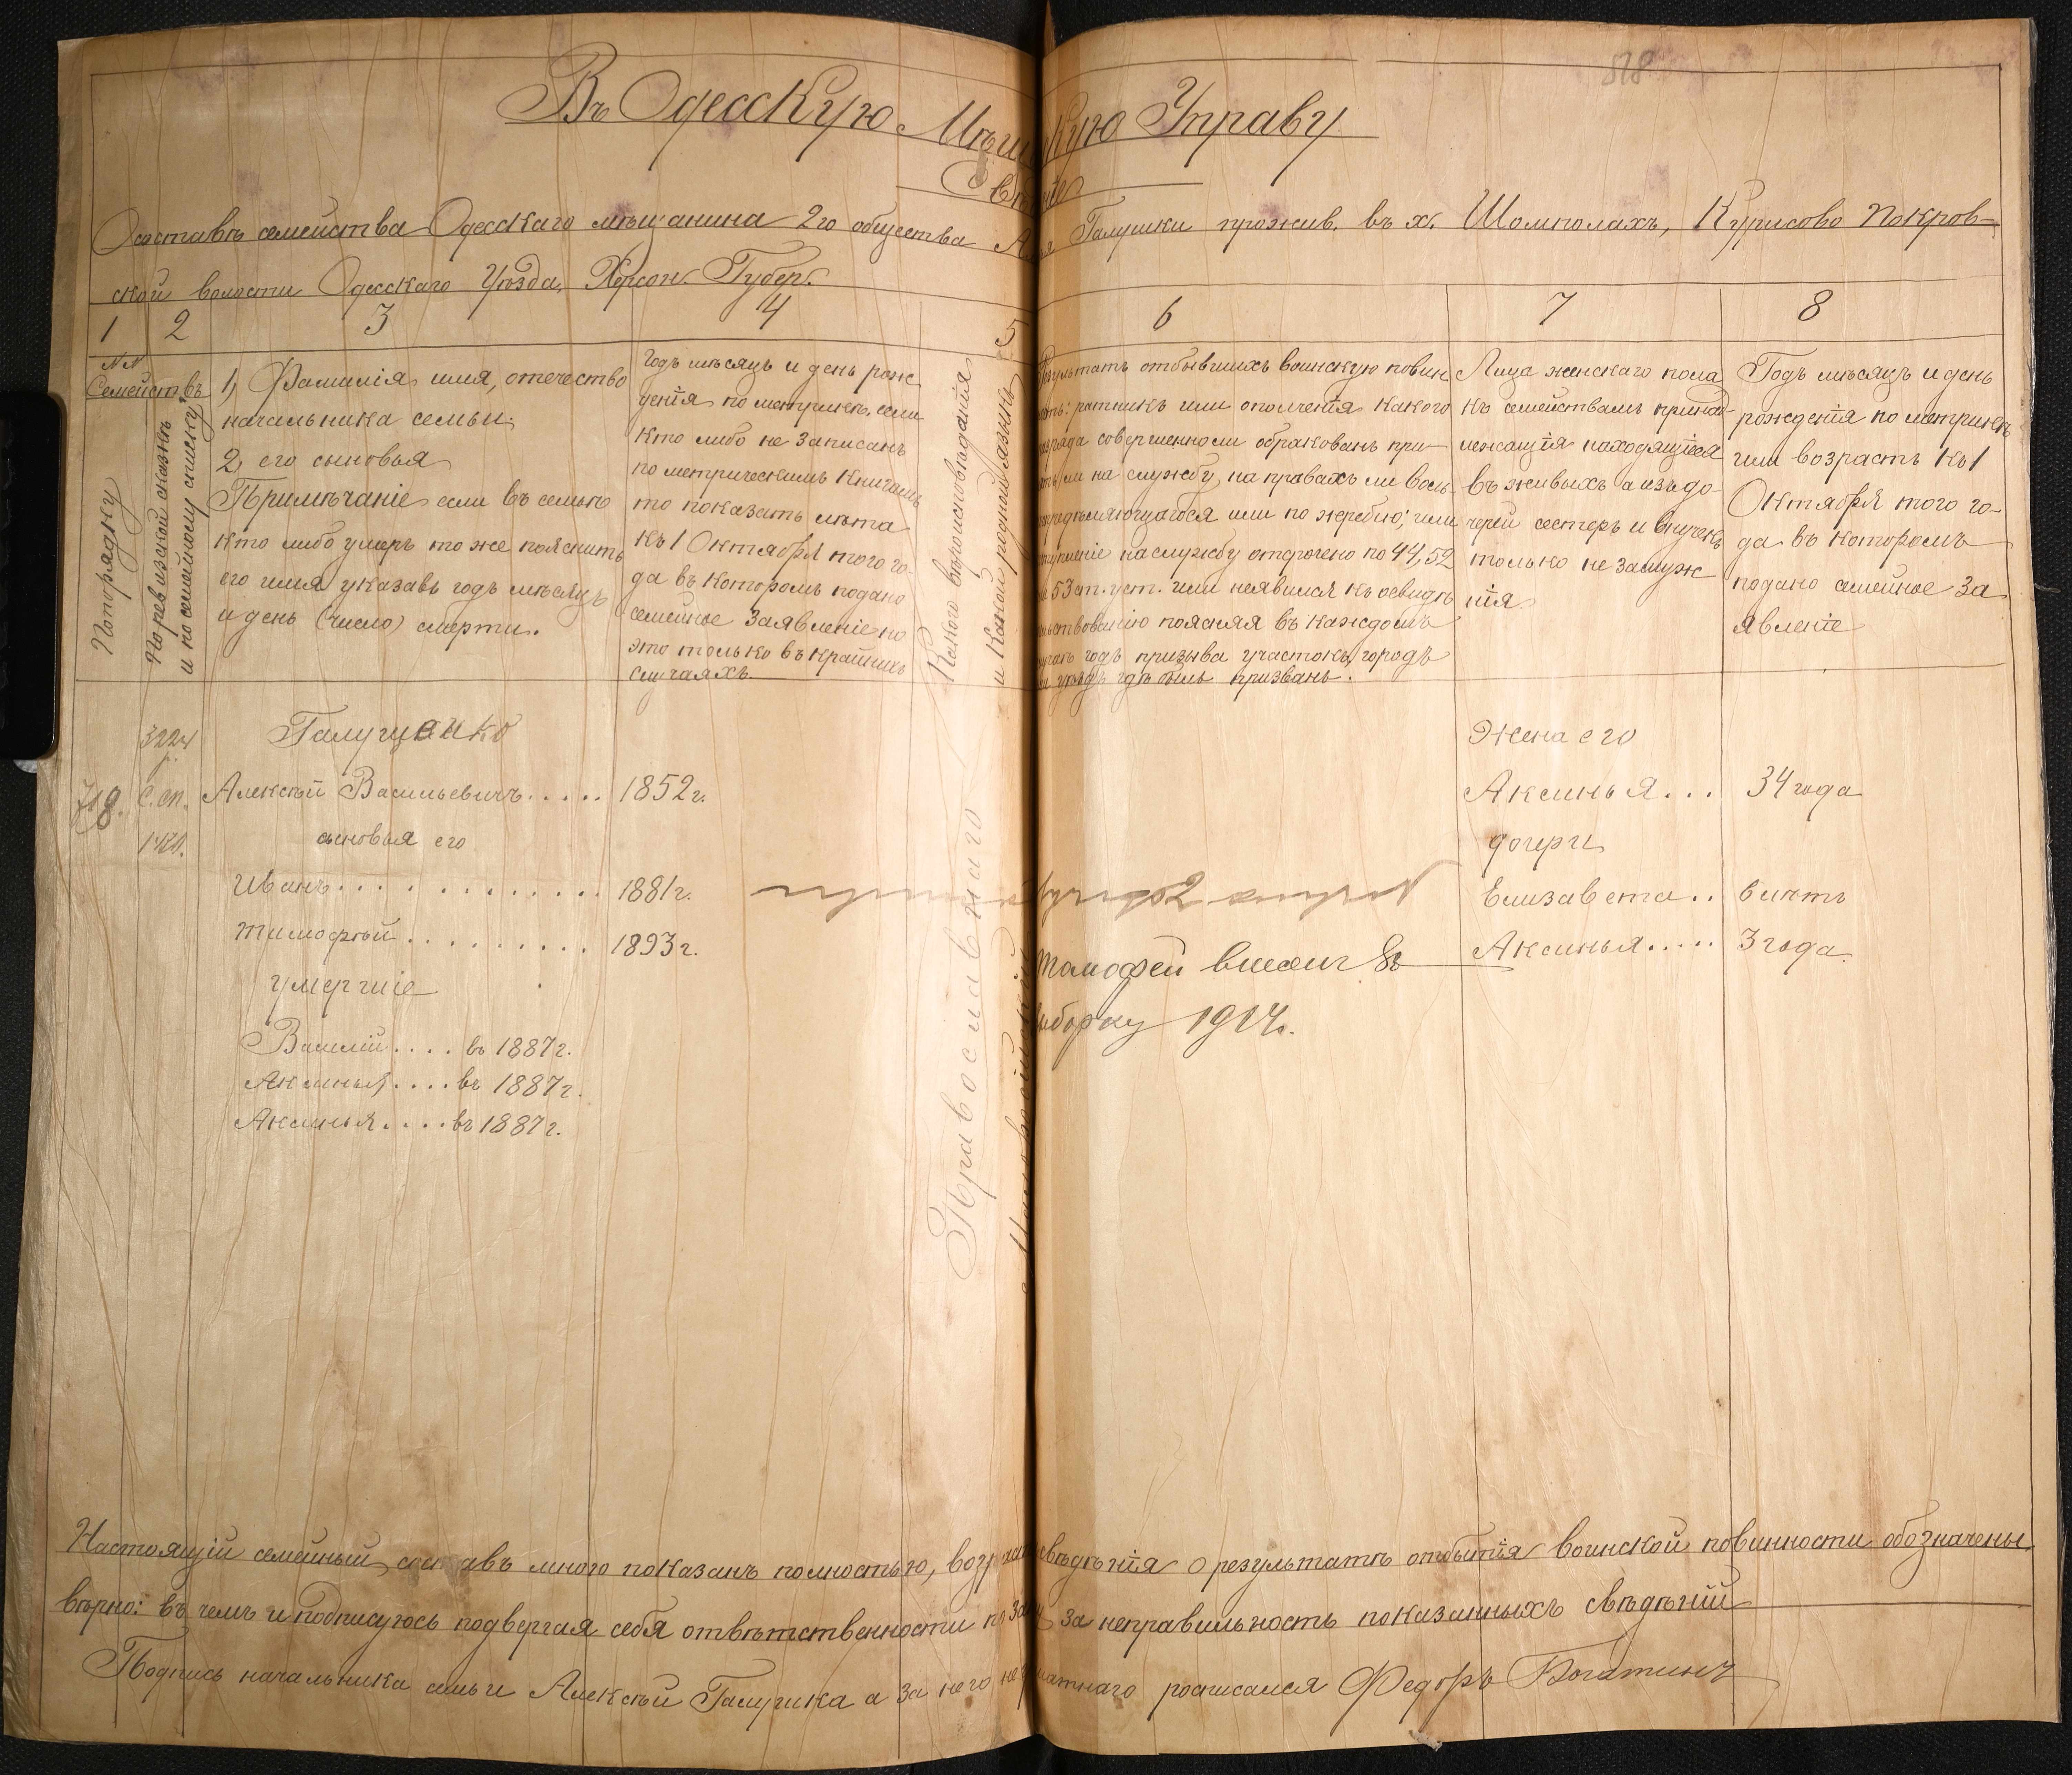 818
Въ Одесскую Мѣщ кую Управу
Свѣд ніе
О составѣ семейства Одесскаго мѣщанина 2го общества Ал я Галушки прожив. въ х. Шомполахъ, Курисово Покров-
ской волости Одесскаго Уѣзда, Херсон. Губер.
1 2 3 4 5 6 7 8
NN
Семействъ
По порядку
По ревизской сказкѣ
и по семейному списку
1, Фамилія имя, отечество
начальника семьи;
2, его сыновья
Примѣчаніе если въ семьѣ
кто либо умеръ то же пояснить
его имя указавъ годъ мѣсяцъ
и день (число) смерти.
Годъ мѣсяцъ и день рож
денія по метрикѣ, если
кто либо не записанъ
по метрическимъ книгамъ
то показать лѣта
къ 1 Октября того го-
да въ которомъ подано
семейное Заявленіе но
это только въ крайнихъ
случаяхъ.
Какого вѣроисповѣданія
и какой родной языкъ
Результатъ отбывшихъ воинскую повин
ность: ратникъ или ополченія какого
разряда совершенно ли обракованъ при-
нятъ ли на службу на правахъ ли воль-
ноопредѣляющагося или по жеребію; или
поступленіе на службу отсрочено по 44, 52
и 53 ст. уст. или неявился къ освидѣ
тельствованію поясняя въ каждомъ
случаѣ годъ призыва участокъ, городъ
и уѣздъ гдѣ былъ призванъ.
Лица женскаго пола
къ семействамъ принад-
лежащія находящіеся
въ живыхъ а изъ до-
черей сестеръ и внучекъ
только не замуж
нія
Годъ мѣсяцъ и день
рожденія по метрикѣ
или возрастъ къ 1
Октября того го-
да въ которомъ
подано семейное За
явленіе
3224 Галущенко Жена его
718. с. сп. Алексѣй Васильевичъ..... 1852 г. Аксинья... 34 года
сыновья его дочери
Иванъ............. 1881 г. Елизавета.. 6 лѣтъ
Тимофѣй.......... 1893 г. Аксинья..... 3 года
умершіе
Василій.... въ 1887 г.
Аксинья.... въ 1887 г.
Аксинья.... въ 1887 г.
Православнаго
Тимофей внесен въ
выборку 1914 г.
Настоящій семейный составъ мною показанъ полностью, возр свѣдѣнія о результатѣ отбытія воинской повинности обозначены
вѣрно: въ чемъ и подписуюсь подвергая себя отвѣтственности по зак за неправильность показанныхъ свѣдѣній
Подпись начальника семьи Алексѣй Галушка а за него неграмотнаго росписался Федоръ Богатинъ